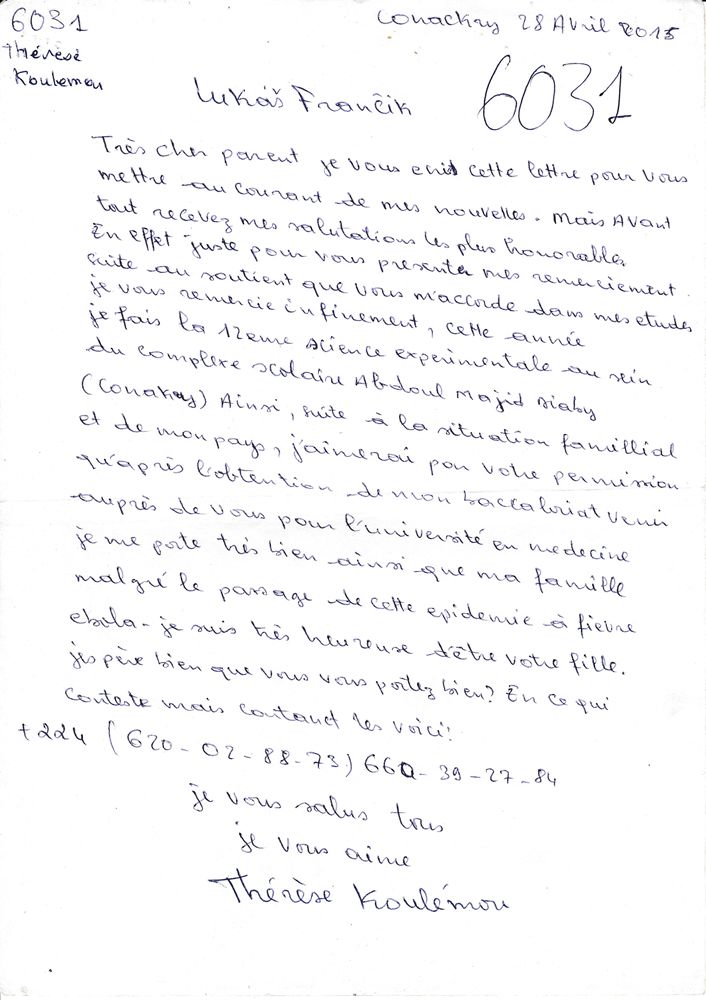 6031
Thérèse
Koulemou
Conackry 28 Avril 2015
Lukáš Frančik
6031
Très cher parent je vous ecrit cette lettre pour vous
mettre au courant de mes nouvelles. Mais Avant
tout recevez mes salutations les plus honorables
En effet juste pour vous presenter mes remerciement
suite au soutient que vous m'accorde dans mes etudes
je vous remercie infinement, cette année
je fais la 12eme science experimentale au sein
du complexe scolaire Abdoul Majid Diaby
(Conakry) Ainsi, suite à la situation famillial
et de mon pays, j'aimerai par votre permission
qu'après l'obtention de mon baccaloriat venir
auprès de vous pour l'université en medecine
je me porte très bien ainsi que ma famille
malgré le passage de cette epidemie à fievre
ebola. je suis très heureuse d'être votre fille.
j'espère bien que vous vous portez bien? En ce qui
conteste mais contanct les voici!
+224 (620-02-88-73) 660-39-27-84
je vous salus tous
je vous aime
Thérèse Koulémou